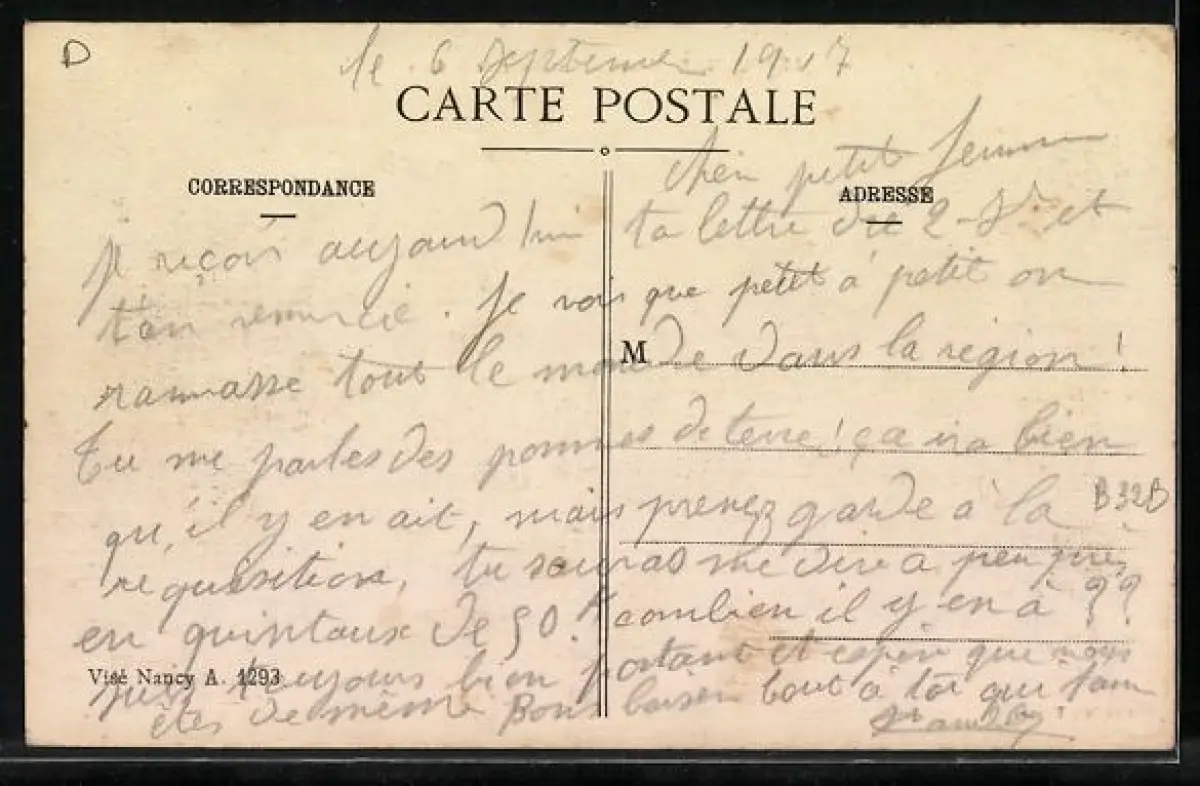 D
le 6 Septembre 1917
CARTE POSTALE
Chèr petit femme
CORRESPONDANCE
ADRESSE
Je reçois aujourd'hui ta lettre du 2 - et
t'en remercie. Je vois que petit à petit on
ramasse tout le monde dans la région!
M
Tu me parles des pommes de terre! ça ira bien
qu'il y en ait, mais prenez garde à la
B32B
requisition, tu sauras me dire a peu près
en quintaux de 50 k combien il y en à ??
Visé Nancy A. 1293
suis toujours bien portant et espère que vous
êtes de même Bons baiser tout à toi qui t'aim